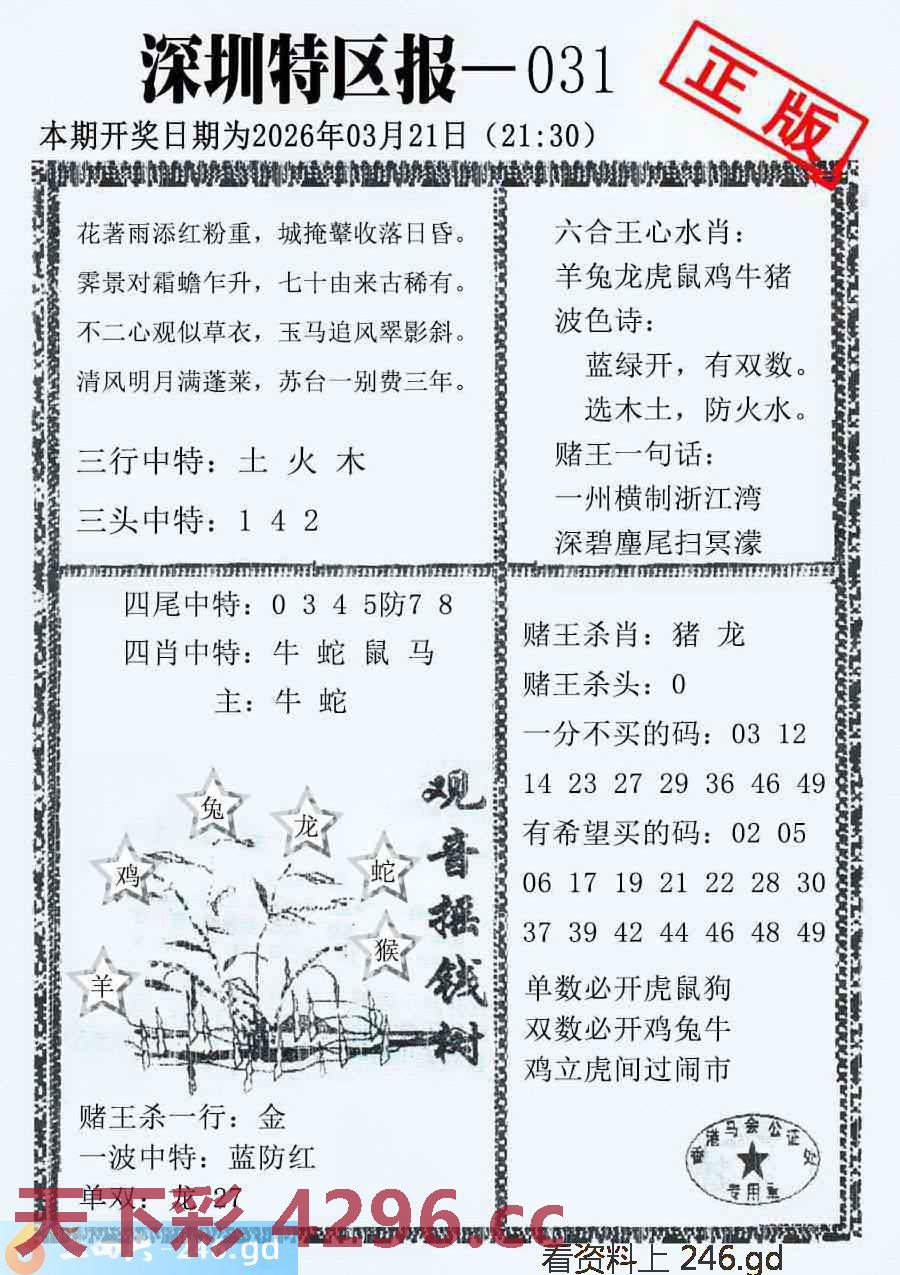 深圳特区报—031
正版
本期开奖日期为2026年03月21日（21:30）
花著雨添红粉重，城掩鼙收落日昏。
霁景对霜蟾乍升，七十由来古稀有。
不二心观似草衣，玉马追风翠影斜。
清风明月满蓬莱，苏台一别费三年。
三行中特：土 火 木
三头中特：1 4 2
六合王心水肖：
羊兔龙虎鼠鸡牛猪
波色诗：
蓝绿开，有双数。
选木土，防火水。
赌王一句话：
一州横制浙江湾
深碧麈尾扫冥濛
四尾中特：0 3 4 5防7 8
四肖中特：牛 蛇 鼠 马
主：牛 蛇
兔
龙
鸡
蛇
猴
羊
观音摇钱树
赌王杀一行：金
一波中特：蓝防红
单双：龙 27
赌王杀肖：猪 龙
赌王杀头：0
一分不买的码：03 12
14 23 27 29 36 46 49
有希望买的码：02 05
06 17 19 21 22 28 30
37 39 42 44 46 48 49
单数必开虎鼠狗
双数必开鸡兔牛
鸡立虎间过闹市
香港马会公证处
专用章
天下彩 4296.cc
看资料上 246.gd